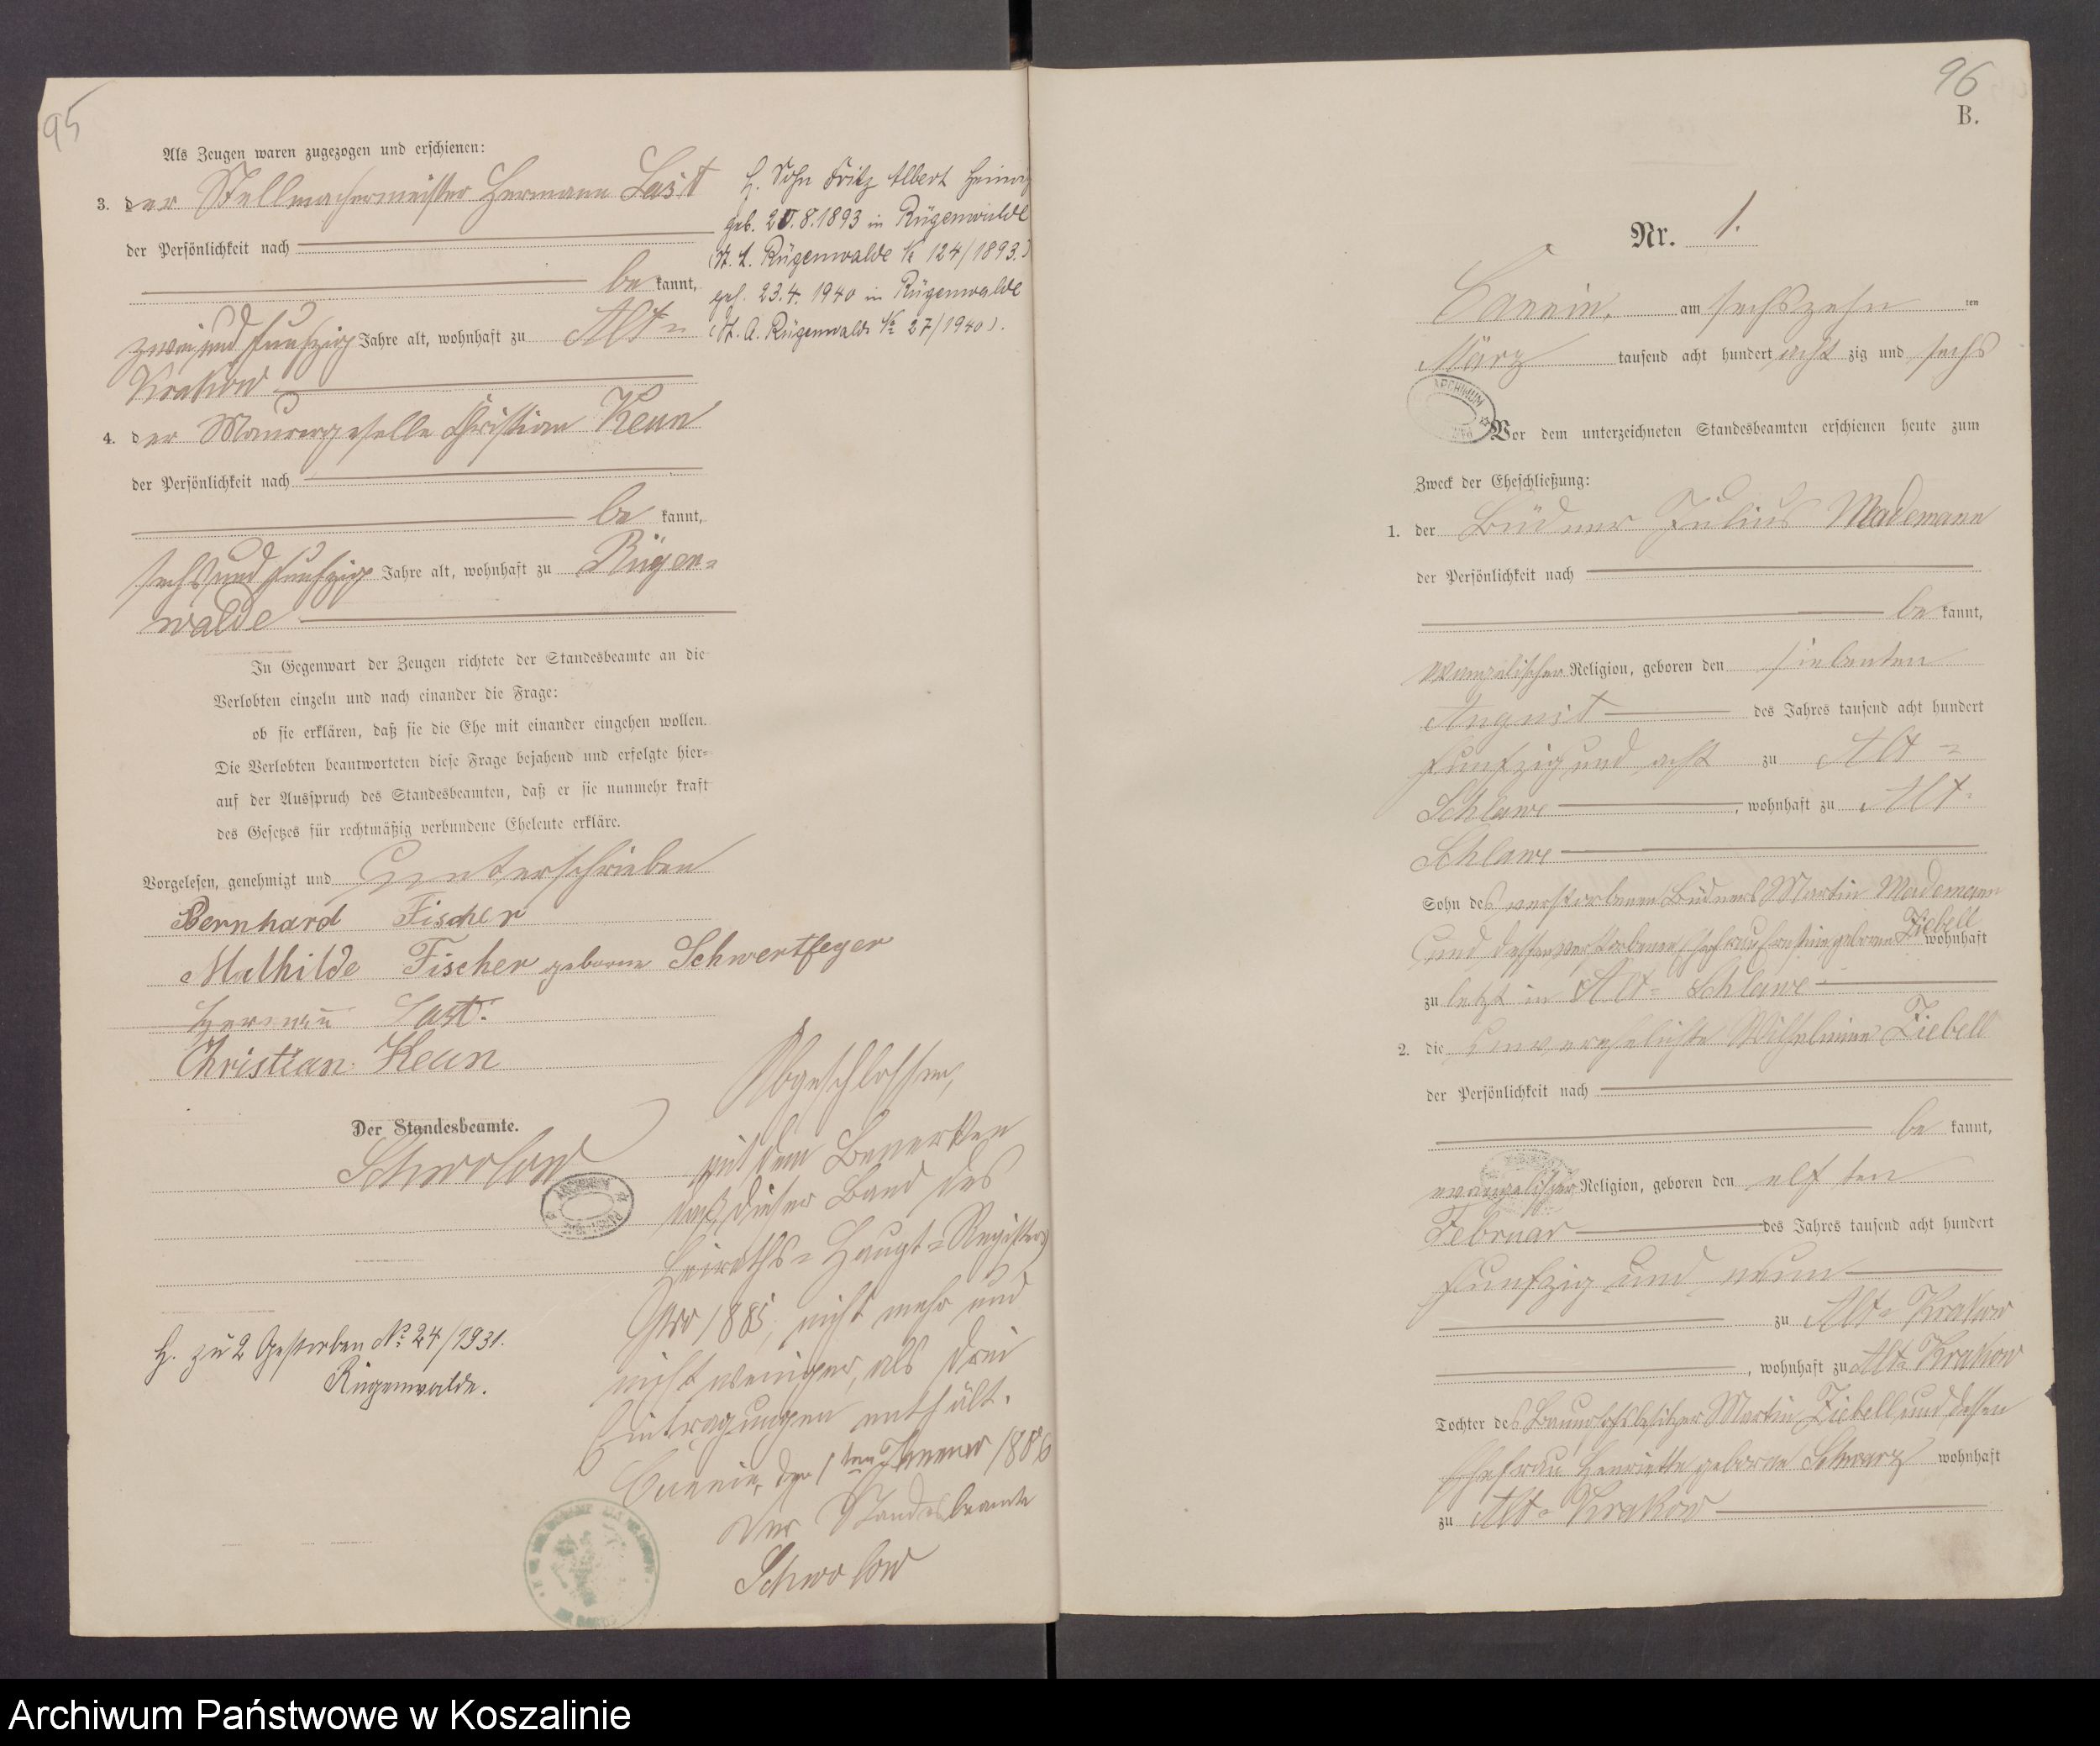 95
Als Zeugen waren zugezogen und erschienen:
3. der Stellmachermeister Hermann Last
der Persönlichkeit nach
be kannt,
zwei und funfzig Jahre alt, wohnhaft zu Alt-
Krakow
4. der Maurergeselle Christian Keun
der Persönlichkeit nach
be kannt,
sechs und funfzig Jahre alt, wohnhaft zu Rügen-
walde
In Gegenwart der Zeugen richtete der Standesbeamte an die
Verlobten einzeln und nach einander die Frage:
ob sie erklären, daß sie die Ehe mit einander eingehen wollen.
Die Verlobten beantworteten diese Frage bejahend und erfolgte hier-
auf der Ausspruch des Standesbeamten, daß er sie nunmehr kraft
des Gesetzes für rechtmäßig verbundene Eheleute erkläre.
Vorgelesen, genehmigt und unterschrieben
Bernhard Fischer
Mathilde Fischer geborne Schwertfeger
Hermann Last.
Christian Keun
Der Standesbeamte.
Schwolow
H. zu 2 Gestorben No 24/1931.
Rügenwalde.
H. Sohn Fritz Albert
geb. 8.1893 in Rügenwalde
(St. A. Rügenwalde No 124/1893.)
23.4.1940 in Rügenwalde
(St. A. Rügenwalde No 27/1940).
Abgeschlossen,
mit dem Bemerken
daß dieser Band des
Heiraths-Haupt-Registers
pro 1885, nicht mehr und
nicht weniger, als drei
Eintragungen enthält.
Cannin, den 1ten Januar 1886
Der Standesbeamte
Schwolow
96
B.
Nr. 1.
Cannin, am sechszehn ten
März tausend acht hundert acht zig und sechs
ARCHIWUM
Vor dem unterzeichneten Standesbeamten erschienen heute zum
Zweck der Eheschließung:
1. der Büdner Julius Mademann
der Persönlichkeit nach
be kannt,
evangelischer Religion, geboren den siebenten
August des Jahres tausend acht hundert
funfzig und acht zu Alt-
Schlawe, wohnhaft zu Alt-
Schlawe
Sohn des verstorbenen Büdners Martin Mademann
und dessen verstorbenen Ehefrau Ernstine geborene Ziebell wohnhaft
zu letzt in Alt-Schlawe
2. die unverehelichte Wilhelmine Ziebell
der Persönlichkeit nach
be kannt,
evangelischer Religion, geboren den elf ten
Februar des Jahres tausend acht hundert
funfzig und neun
zu Alt-Krakow
, wohnhaft zu Alt-Krakow
Tochter des Bauerhofsbesitzer Martin Ziebell und dessen
Ehefrau Henriette geborne Schwarz wohnhaft
zu Alt-Krakow
Archiwum Państwowe w Koszalinie